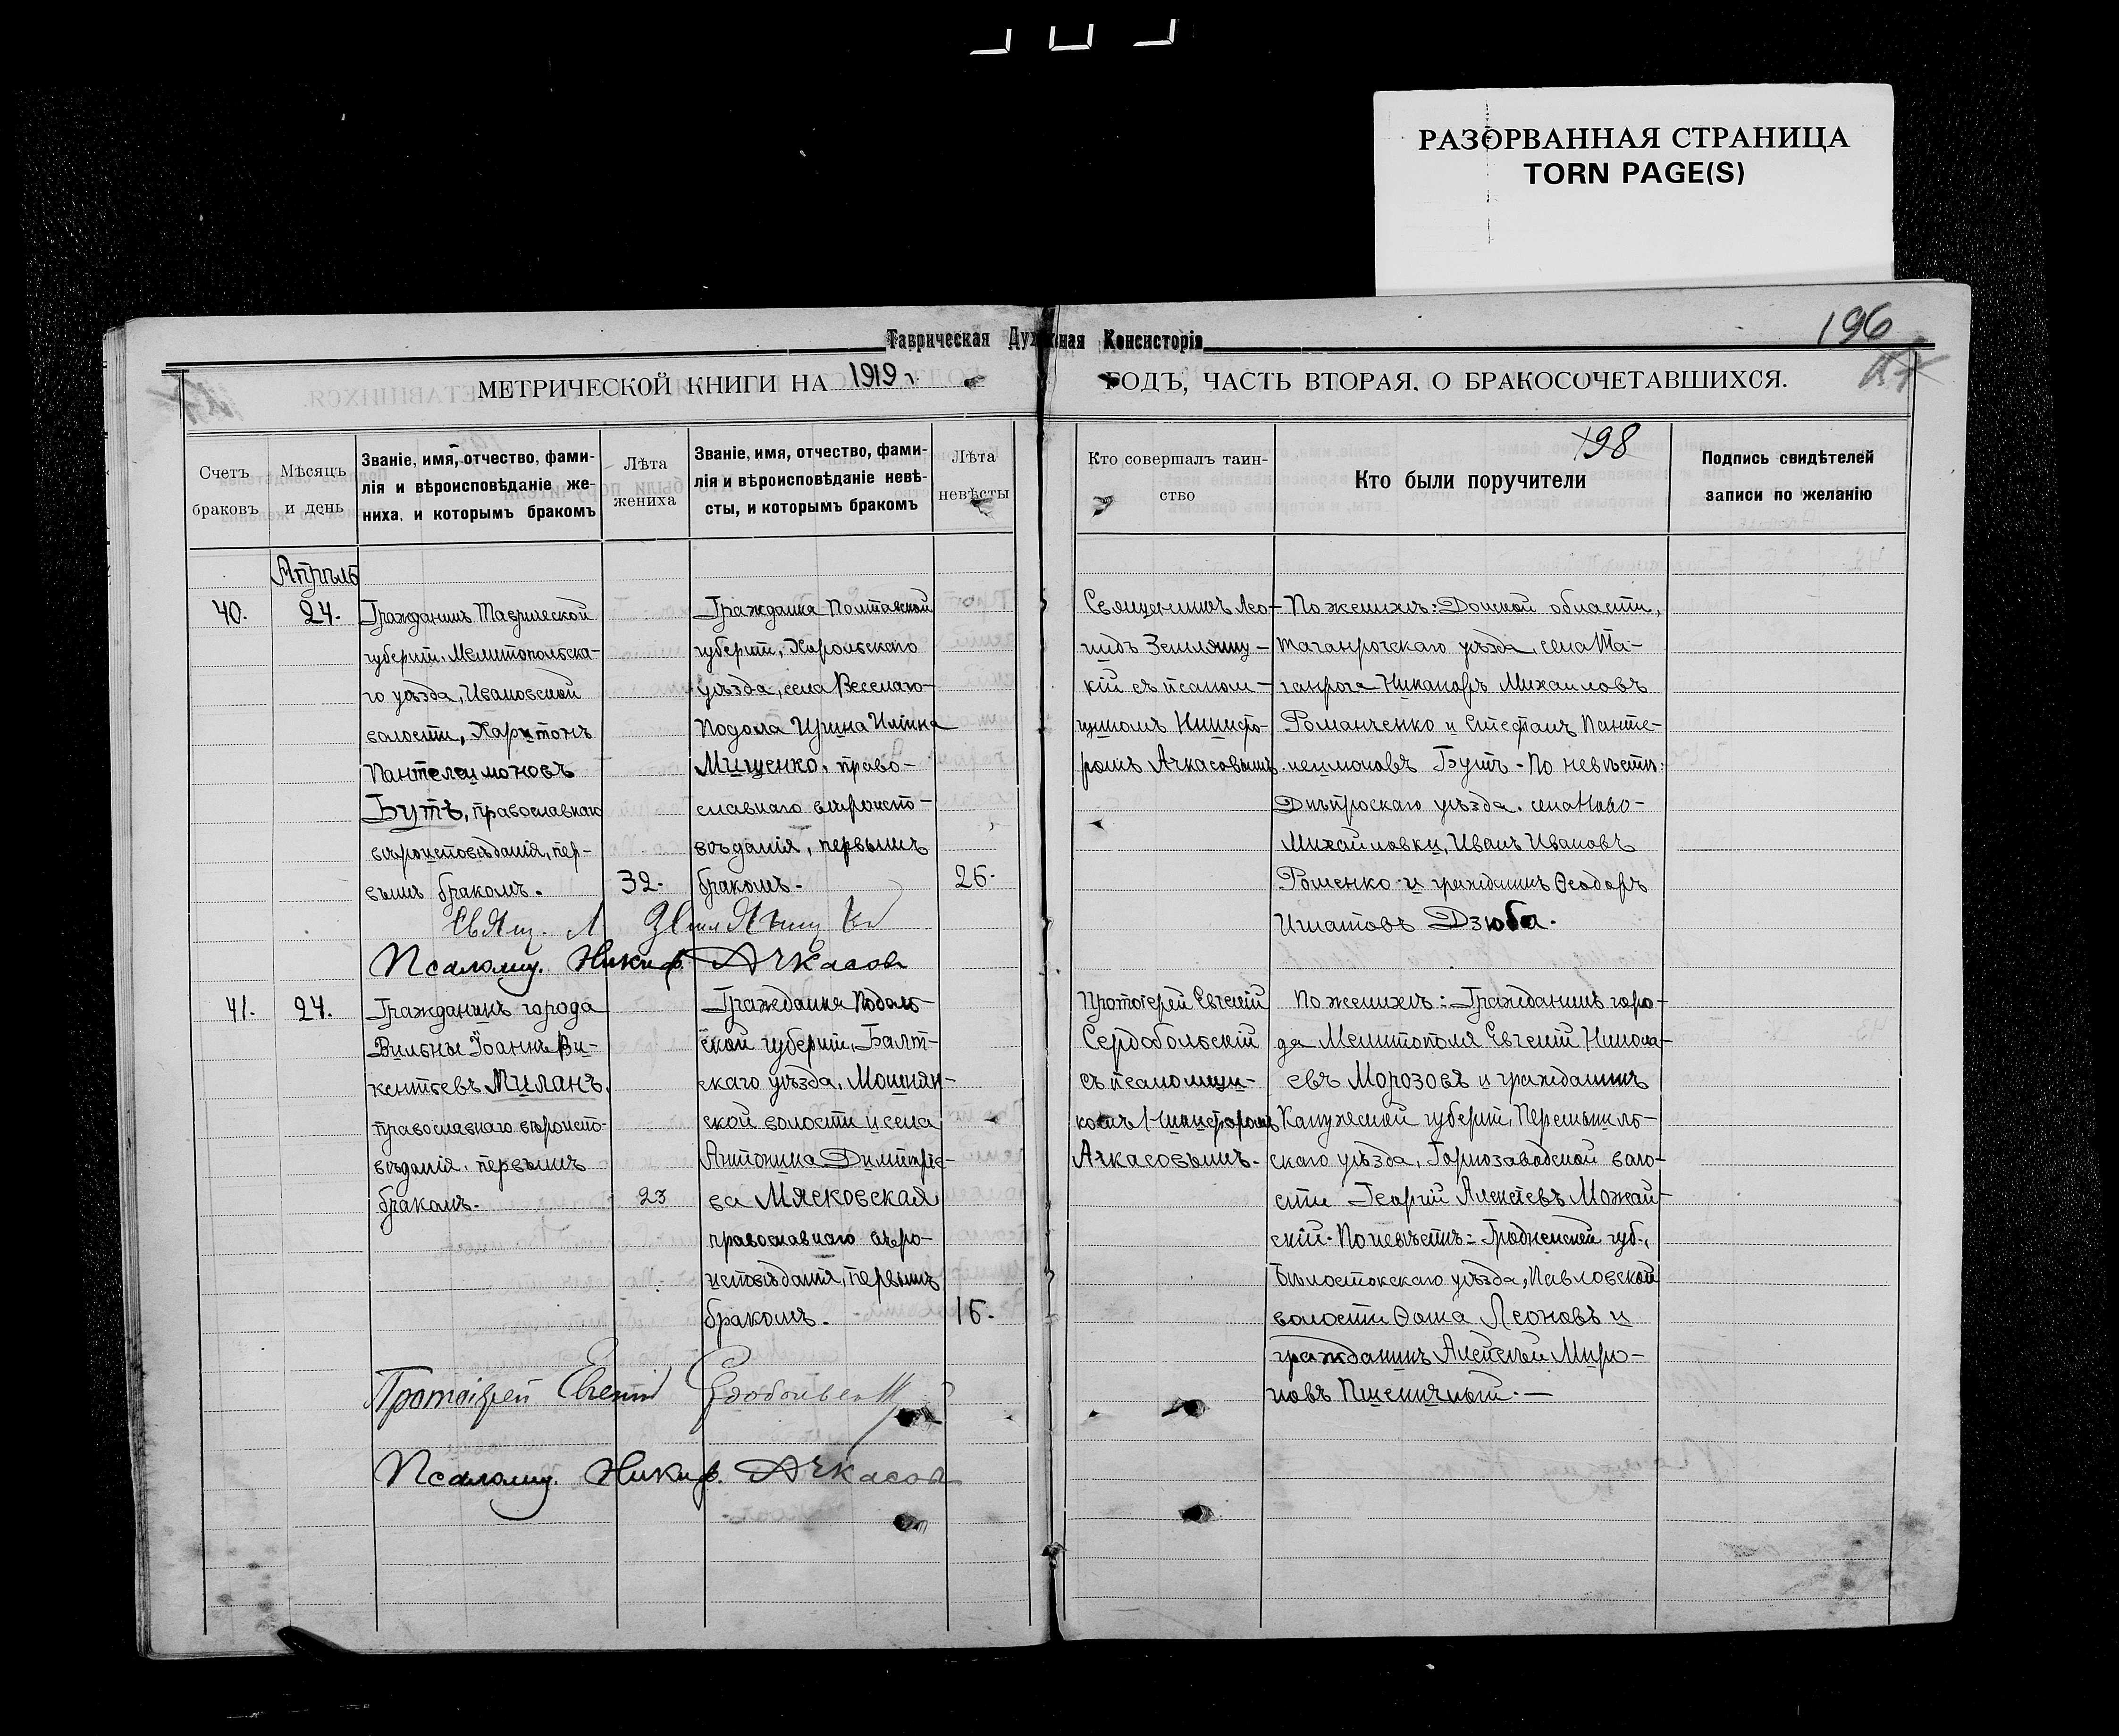 РАЗОРВАННАЯ СТРАНИЦА
TORN PAGE(S)
196
Таврическая Духовная Консисторія
МЕТРИЧЕСКОЙ КНИГИ НА 1919 г.
ГОДЪ, ЧАСТЬ ВТОРАЯ, О БРАКОСОЧЕТАВШИХСЯ.
198
Счетъ
браковъ
Мѣсяцъ
и день
Званіе, имя, отчество, фами-
лія и вѣроисповѣданіе же-
ниха, и которымъ бракомъ
Лѣта
жениха
Званіе, имя, отчество, фами-
лія и вѣроисповѣданіе невѣ-
сты, и которымъ бракомъ
Лѣта
невѣсты
Кто совершалъ таин-
ство
Кто были поручители
Подпись свидѣтелей
записи по желанію
Апрѣль
40.
24.
Гражданинъ Таврической
губерніи, Мелитопольска-
го уѣзда, Ивановской
волости, Харитонъ
Пантелеимоновъ
Бутъ, православнаго
вѣроисповѣданія, пер-
вымъ бракомъ.
32.
Гражданка Полтавской
губерніи, Хорольскаго
уѣзда, села Веселаго-
Подола Ирина Иліина
Мищенко, право-
славнаго вѣроиспо-
вѣданія, первымъ
бракомъ.
26.
Священникъ Лео-
нидъ Земляниц-
кій съ псалом-
щикомъ Никифо-
ромъ Ачкасовымъ.
По женихѣ: Донской области,
Таганрогскаго уѣзда, села Та-
ганрога Никаноръ Михаиловъ
Романченко и Стефанъ Панте-
леимоновъ Бутъ. По невѣстѣ:
Днѣпроскаго уѣзда, села Ново-
Михайловки, Иванъ Ивановъ
Роменко и гражданинъ Ѳеодоръ
Игнатовъ Дзюба.
Свящ. Л. Земляницкій
Псаломщ. Никиф. Ачкасов
41.
24.
Гражданинъ города
Вильны Іоаннъ Ви-
кентьевъ Миланъ,
православнаго вѣроиспо-
вѣданія, первымъ
бракомъ.
23
Гражданка Подоль-
ской губерніи, Балт-
скаго уѣзда, Мошнян-
ской волости и села
Антонина Димитріе-
ва Мясковская
православнаго вѣро-
исповѣданія, первымъ
бракомъ.
16.
Протоіерей Евгеній
Сердобольскій
съ псаломщи-
комъ Никифоромъ
Ачкасовымъ.
По женихѣ: Гражданинъ горо-
да Мелитополя Евгеній Никола-
евъ Морозовъ и гражданинъ
Калужской губерніи, Перемышль-
скаго уѣзда, Горнозаводской воло-
сти Георгій Алексѣевъ Можай-
скій. По невѣстѣ: Гродненской губ.,
Бѣлостокскаго уѣзда, Павловской
волости Ѳома Леоновъ и
гражданинъ Алексѣй Миро-
новъ Пшеничный.—
Протоіерей Евгеній Сердобольскій
Псаломщ. Никиф. Ачкасов